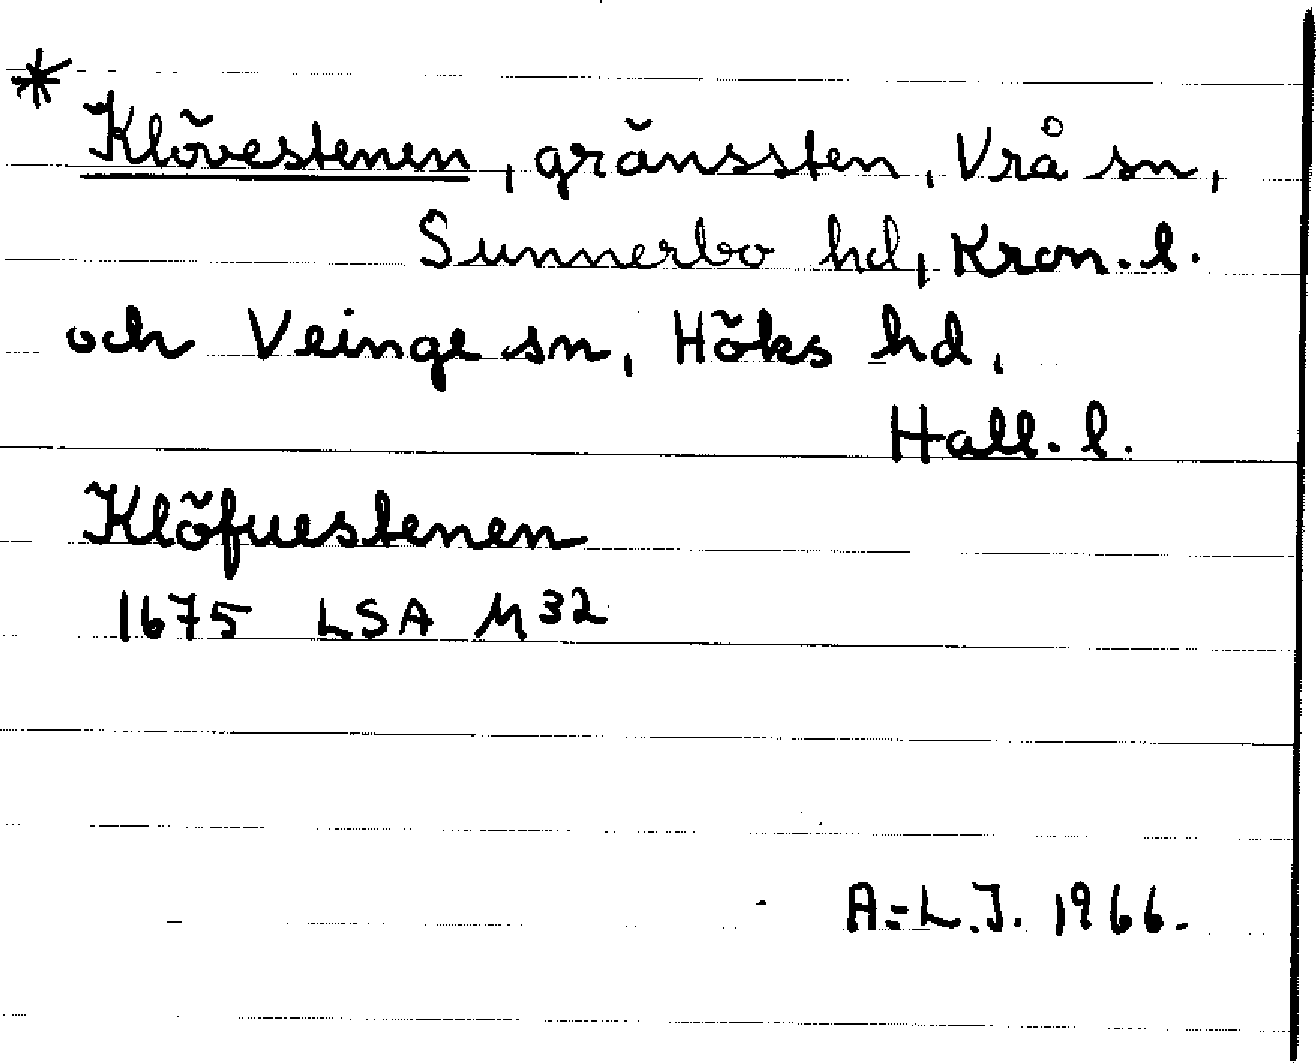 * Klövestenen, gränssten, Vrå sn,
Sunnerbo hd, Kron. l.
och Veinge sn, Höks hd,
Hall. l.
Klöfuestenen
1675 LSA M32
A.-L.J. 1966.